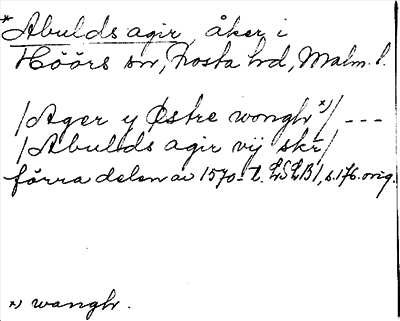 *Abulds agir, åker i
Höörs sn, Frosta hd, Malm. l.
/Ager y Østre wonghr *)/ ---
/Abulds agir vij skr/
förra delen av 1570-t. LSLB I, s. 176. orig.
*) wanghr.